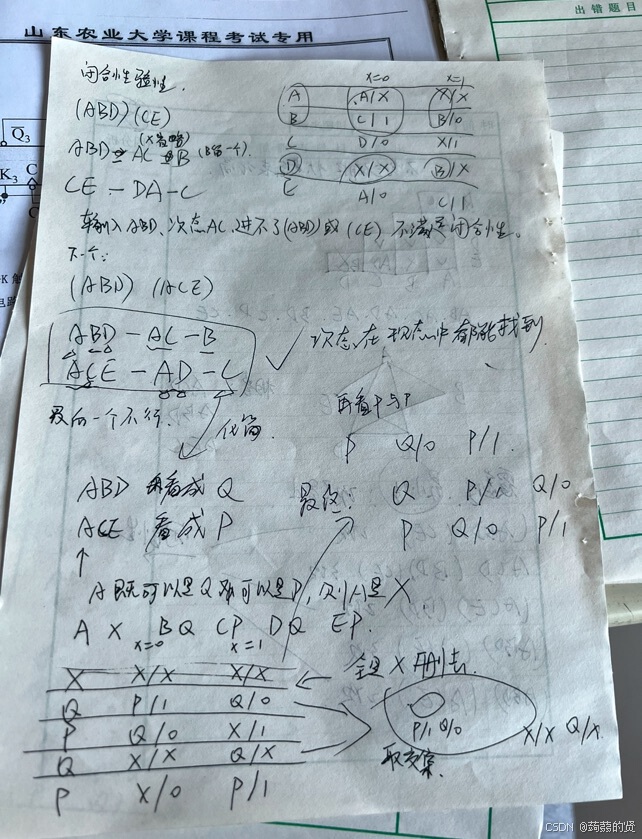 山东农业大学课程考试专用
出错题目
Q3
K3
C
闭合性验性.
(ABD)(CE)
ABD AC B
CE - DA - C
x=0 x=1
A A/X X/X
B C/1 B/0
C D/0 X/1
D X/X B/X
E A/0 C/1
输入ABD、次态AC、进不了(ABD)或(CE)不满足闭合性。
下一个:
(ABD) (ACE)
ABD - AC - B
ACE - AD - C
次态在现态中都能找到
最向一个不行.
化简
再看P与P
P Q/0 P/1.
ABD 看成 Q
ACE 看成 P
最终: Q P/1 Q/0
P Q/0 P/1
A既可以是Q 可以是P,则A是X
A X BQ CP DQ EP.
x=0 x=1
X X/X X/X
Q P/1 Q/0
P Q/0 X/1
Q X/X Q/X
P X/0 P/1
全是X 删去.
P/1 Q/0
X/X Q/X.
取交集.
CSDN @蒻蒻的贤